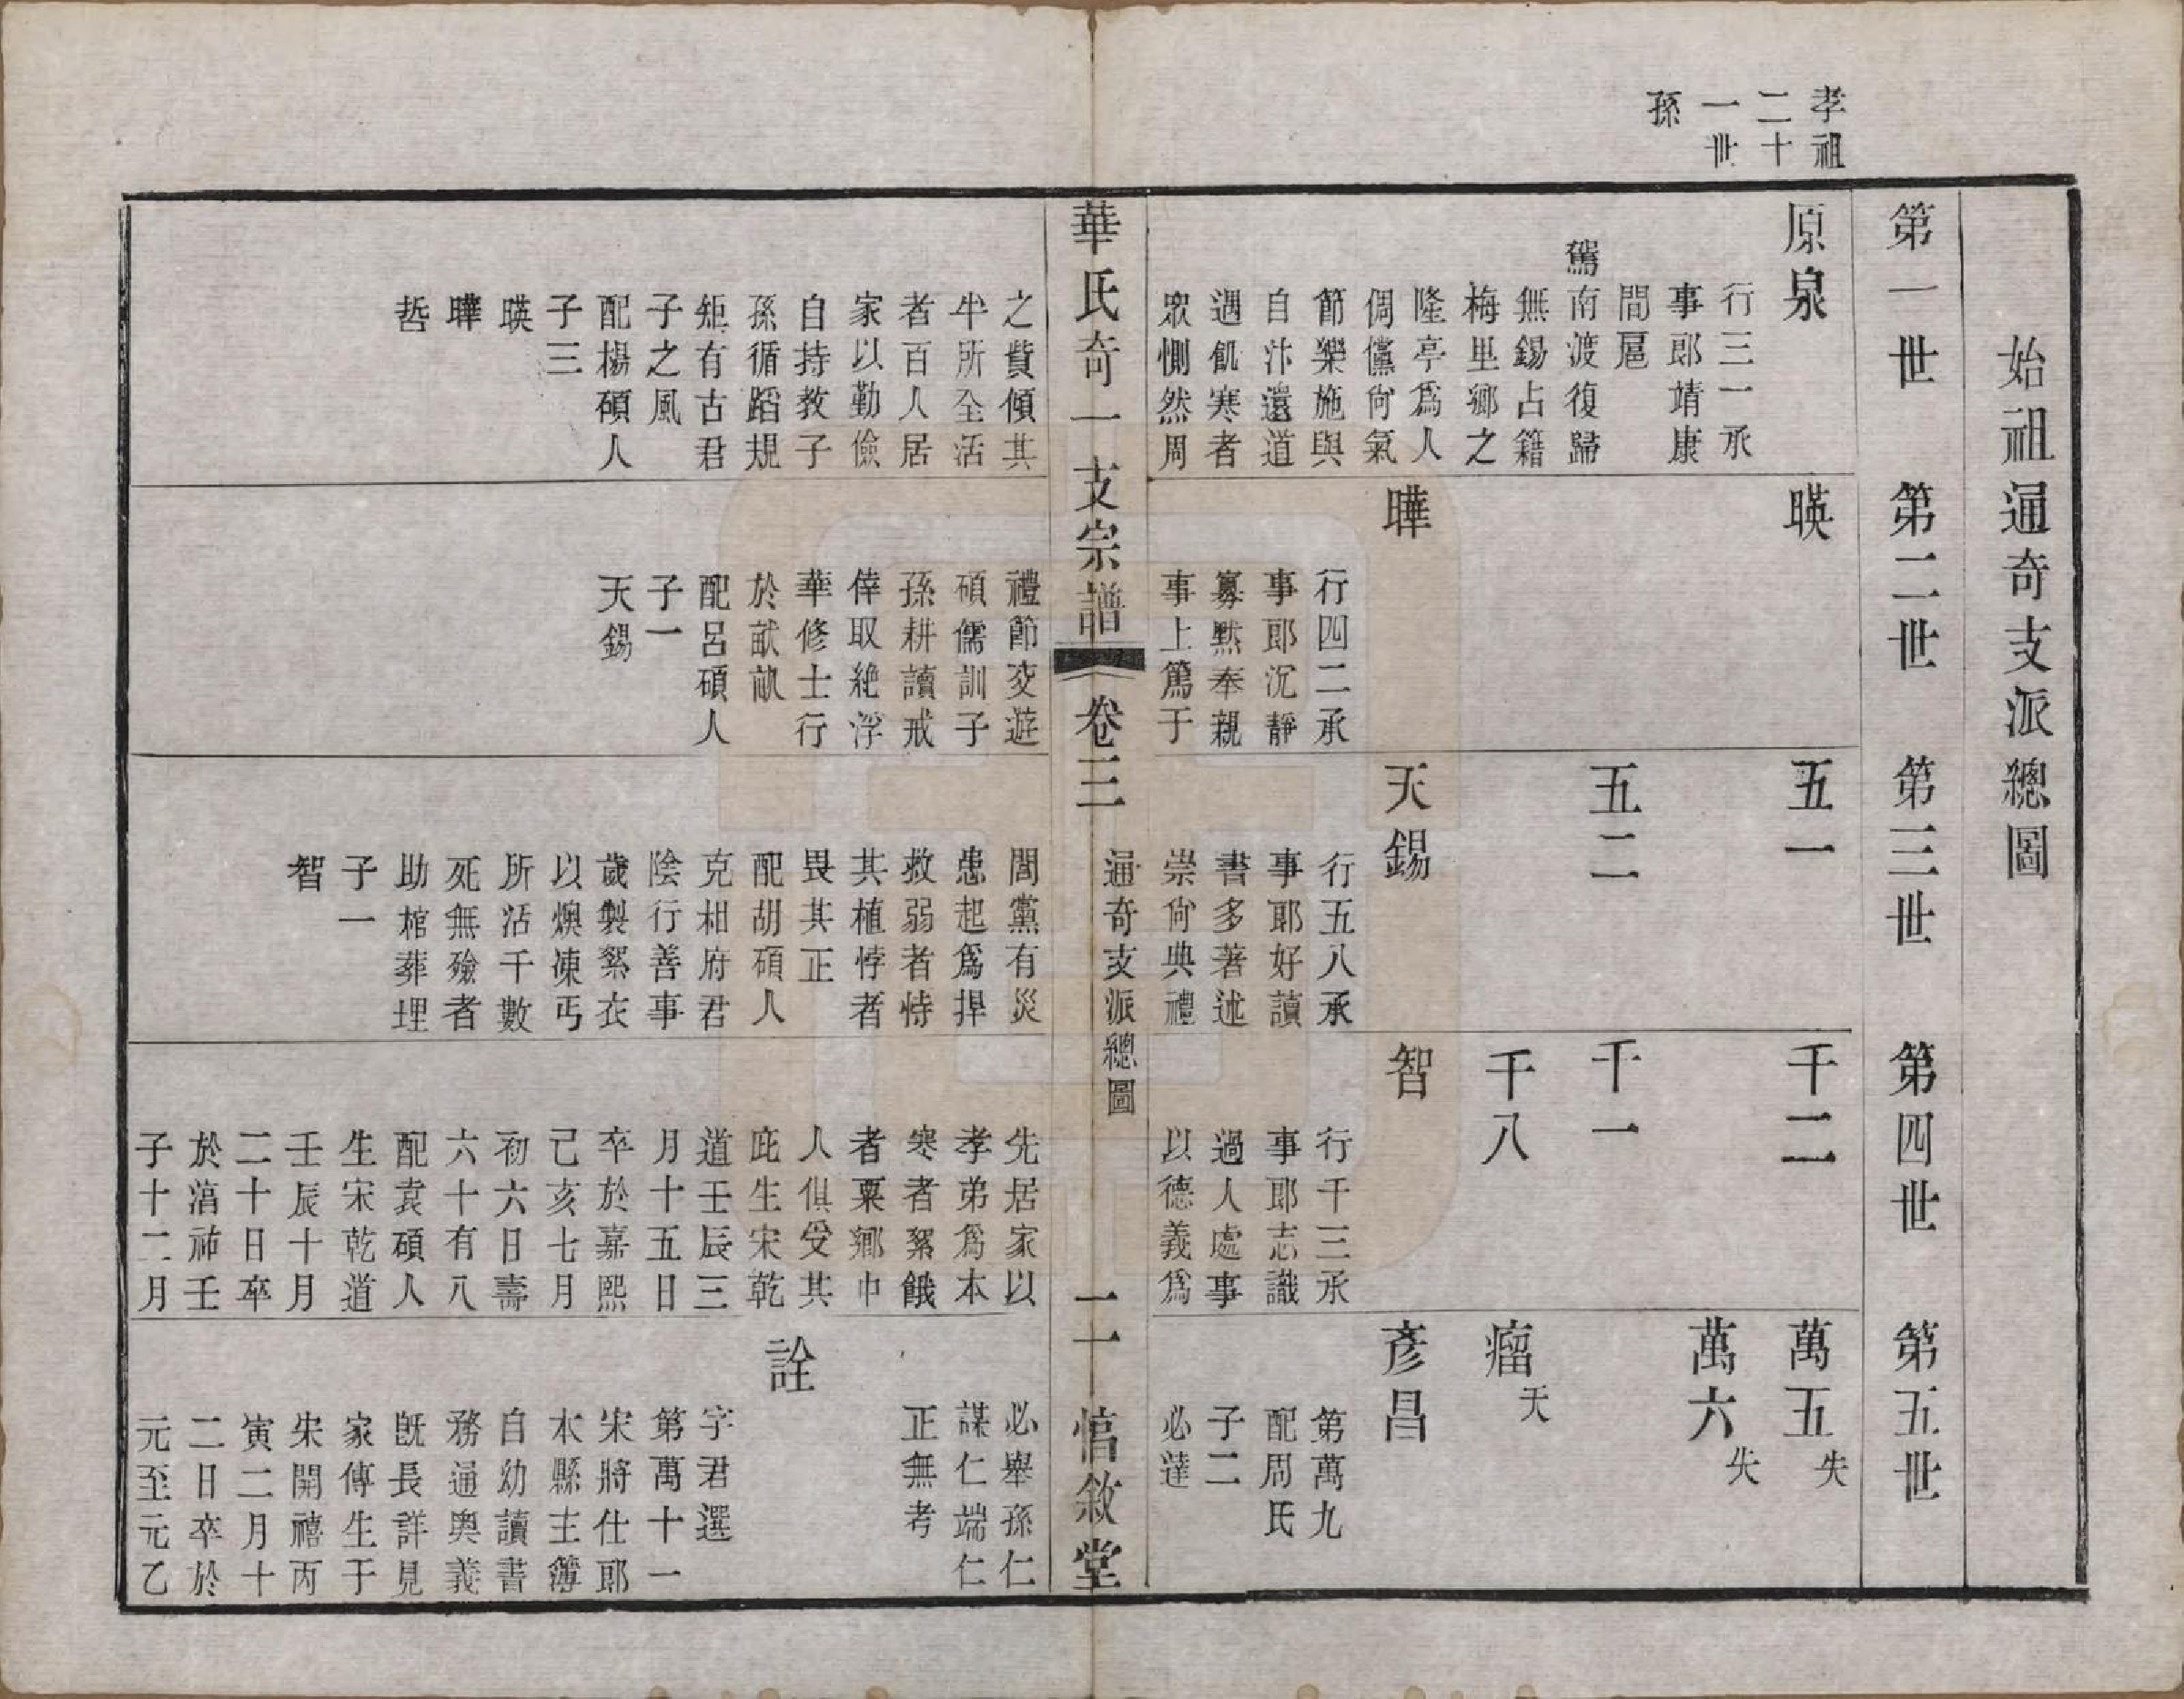 孝祖
二十
一世
孫
始祖通奇支派總圖
第一世
第二世
第三世
第四世
第五世
原泉
行三一承
事郎靖康
間扈
駕南渡復歸
無錫占籍
梅里鄉之
隆亭爲人
倜儻尙氣
節樂施與
自汴還道
遇飢寒者
衆惻然周
之費傾其
半所全活
者百人居
家以勤儉
自持教子
孫循蹈規
矩有古君
子之風
配楊碩人
子三
暎
曄
晢
暎
曄
行四二承
事郎沉靜
寡默奉親
事上篤于
禮節交遊
碩儒訓子
孫耕讀戒
倖取絶浮
華修士行
於畎畝
配呂碩人
子一
天錫
五一
五二
天錫
行五八承
事郎好讀
書多著述
崇尙典禮
閭黨有災
患起爲捍
救弱者恃
其植悖者
畏其正
配胡碩人
克相府君
陰行善事
歲製絮衣
以燠凍丐
所活千數
死無殮者
助棺葬埋
子一
智
千二
千一
千八
智
行千三承
事郎志識
過人處事
以德義爲
先居家以
孝弟爲本
寒者絮餓
者粟鄉中
人俱受其
庇生宋乾
道壬辰三
月十五日
卒於嘉熙
己亥七月
初六日壽
六十有八
配袁碩人
生宋乾道
壬辰十月
二十日卒
於淳祐壬
子十二月
萬五失
萬六失
瘤天
彥昌
第萬九
配周氏
子二
必達
必舉孫仁
謀仁端仁
正無考
詮
字君選
第萬十一
宋將仕郎
本縣主簿
自幼讀書
務通奧義
旣長詳見
家傳生于
宋開禧丙
寅二月十
二日卒於
元至元乙
華氏奇一支宗譜
卷三
通奇支派總圖
一
十一
惇敘堂